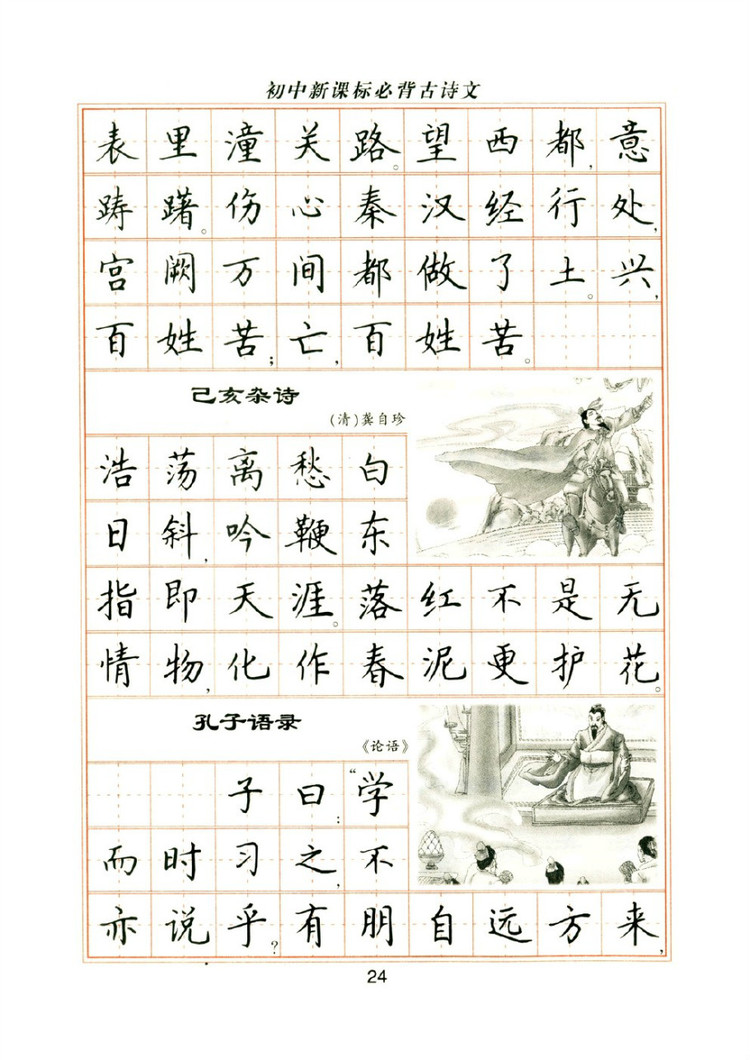 初中新课标必背古诗文
表里潼关路。望西都,意
踌躇。伤心秦汉经行处,
宫阙万间都做了土。兴,
百姓苦;亡,百姓苦。
己亥杂诗
(清)龚自珍
浩荡离愁白
日斜,吟鞭东
指即天涯。落红不是无
情物,化作春泥更护花。
孔子语录
《论语》
子曰:“学
而时习之,不
亦说乎?有朋自远方来,
24